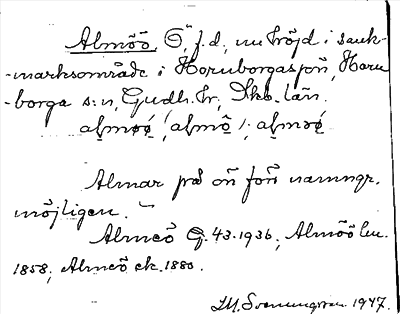 Almöö Ö, f.d., nu höjd i sank-
-marksområde i Hornborgasjön, Horn
-borga s:n, Gudh. hr, Skb. län.
almøó, almö /: almøó
Almar på ön förr namngr.
möjligen.
Almeö G. 43. 1936, Almöö lm.
1858, Almeö ek. 1880.
I.M. Svenungsson. 1947.